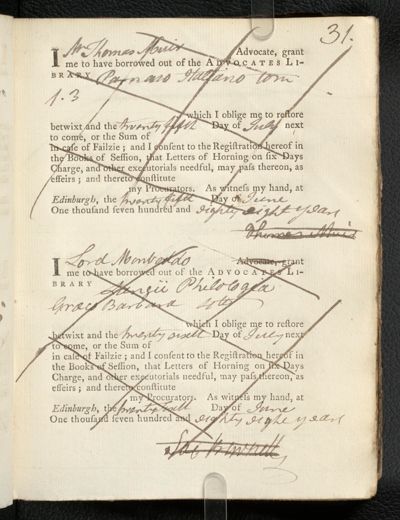 31.
I Mr Thomas Muir Advocate, grant
me to have borrowed out of the ADVOCATES LI-
BRARY Parnaso Italiano tom
1. 3
which I oblige me to restore
betwixt and the twenty fifth Day of July next
to come, or the Sum of
in case of Failzie; and I consent to the Registration hereof in
the Books of Session, that Letters of Horning on six Days
Charge, and other executorials needful, may pass thereon, as
effeirs; and thereto constitute
my Procurators. As witness my hand, at
Edinburgh, the twenty fifth Day of June
One thousand seven hundred and eighty eight years
Thomas Muir
I Lord Monboddo Advocate, grant
me to have borrowed out of the ADVOCATES LI-
BRARY Philologia
Graeco Barbara
which I oblige me to restore
betwixt and the twenty sixth Day of July next
to come, or the Sum of
in case of Failzie; and I consent to the Registration hereof in
the Books of Session, that Letters of Horning on six Days
Charge, and other executorials needful, may pass thereon, as
effeirs; and thereto constitute
my Procurators. As witness my hand, at
Edinburgh, the twenty sixth Day of June
One thousand seven hundred and eighty eight years